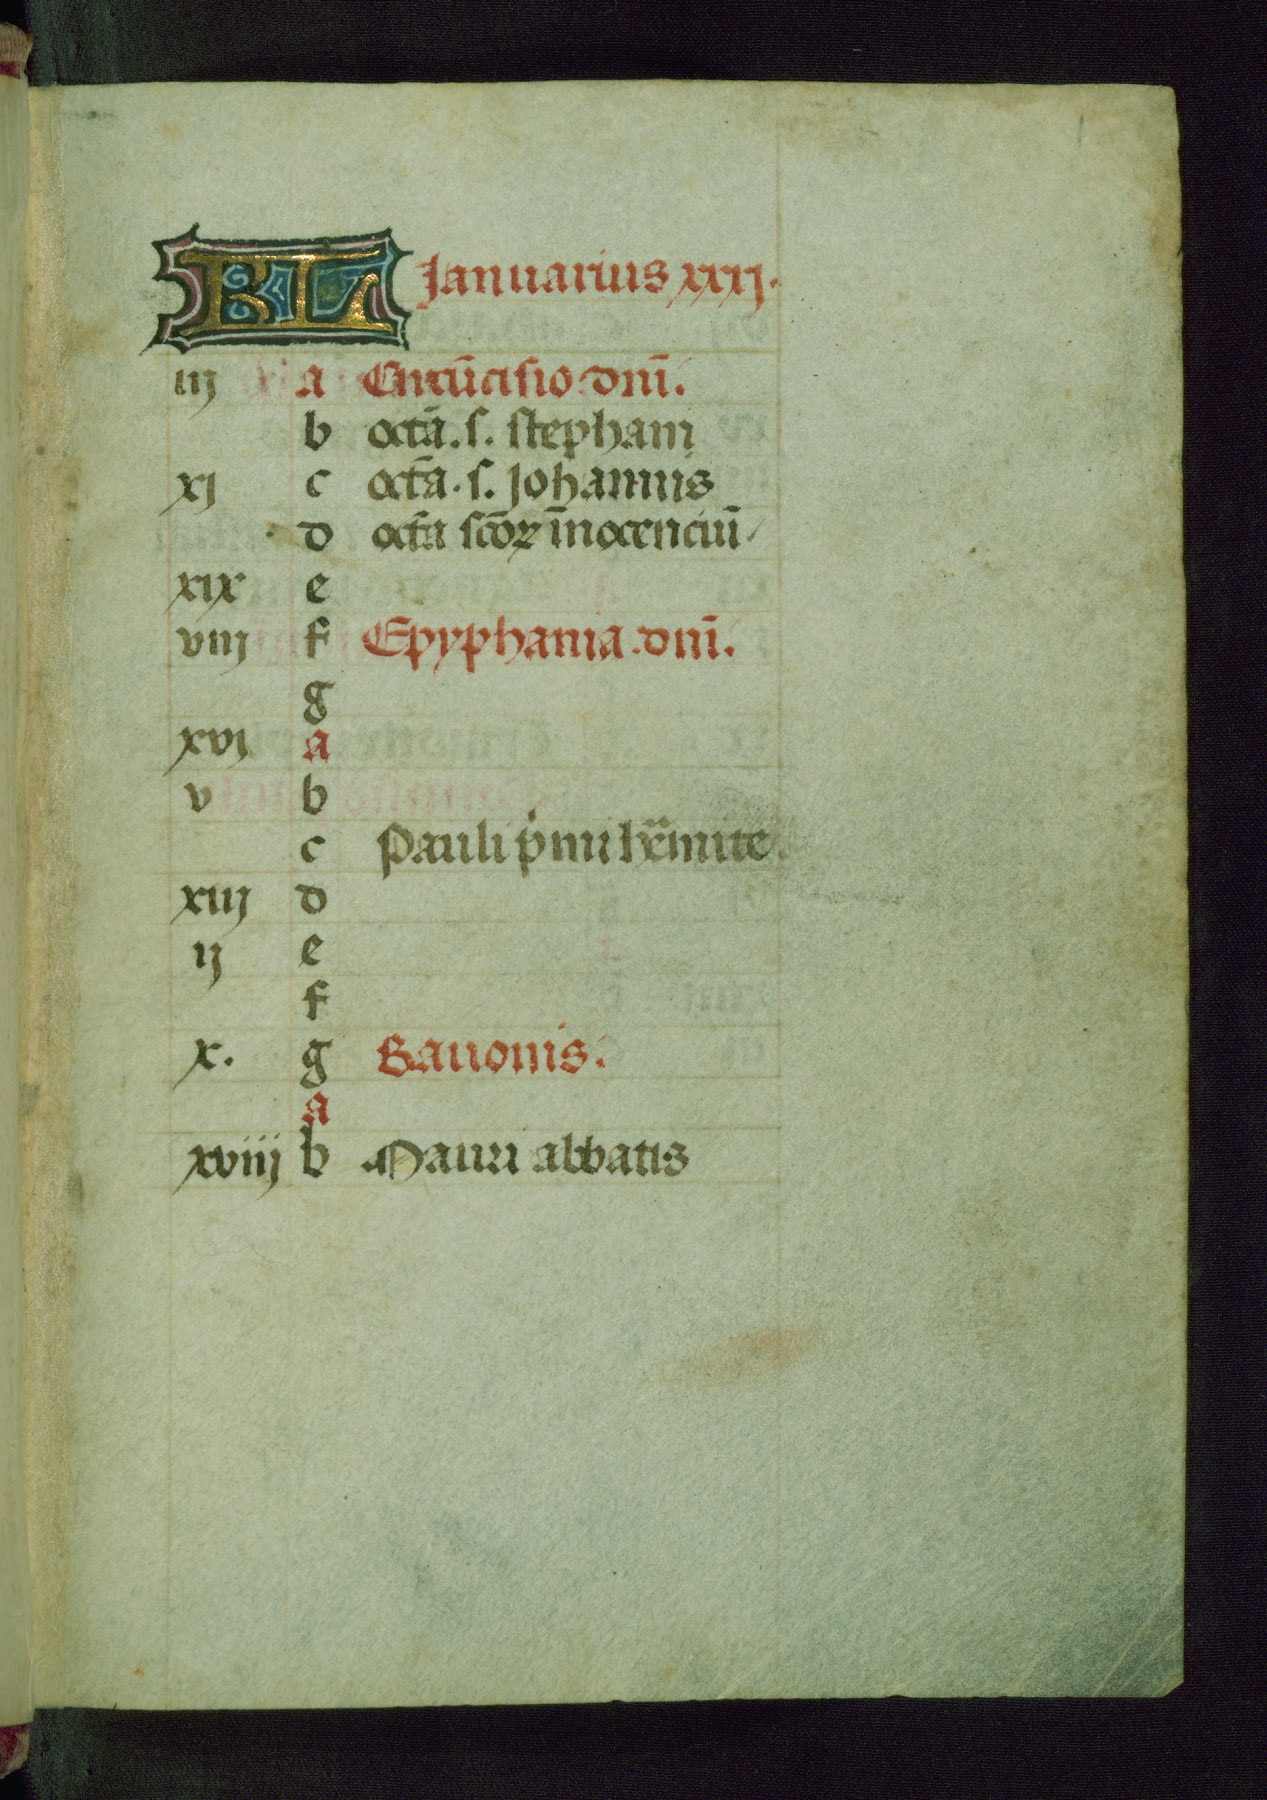 KL Januarius xxxj.
iij a Circūcisio dnī.
b octā. s. stephani
xj c octā. s. Johannis
d octā scōꝝ īnocenciū
xix e
viij f Epyphania dnī.
g
xvj a
v b
c Pauli pͥmi h̓emite
xiij d
ij e
f
x. g Bauonis.
a
xviij b Mauri abbatis